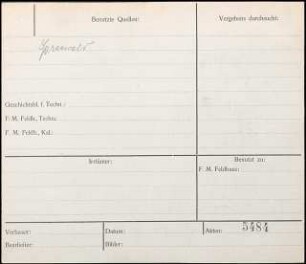 Benutzte Quellen:
Vergebens durchsucht:
Spreewald
Geschichtsbl. f. Techn.:
F. M. Feldh., Techn.:
F. M. Feldh., Kal.:
Irrtümer:
Benutzt zu:
F. M. Feldhaus:
Verfasser:
Datum:
Akten: 5484
Bearbeiter:
Bilder: